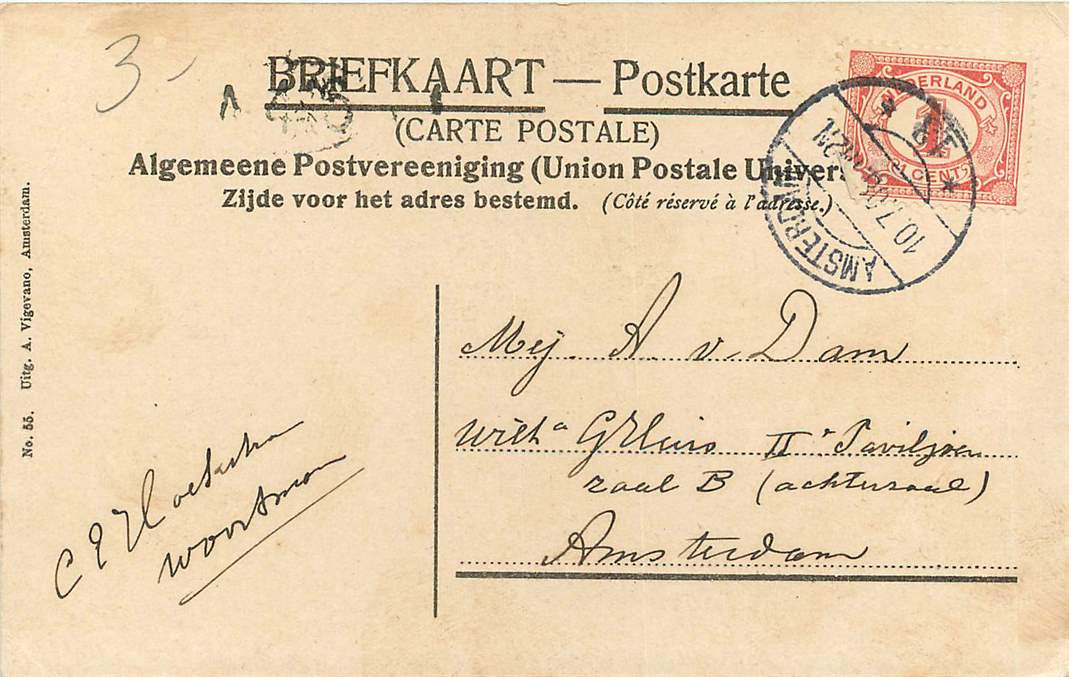 3-
BRIEFKAART — Postkarte
(CARTE POSTALE)
Algemeene Postvereeniging (Union Postale Univer
Zijde voor het adres bestemd. (Côté réservé à l'adresse.)
NEDERLAND
1
CENT
AMSTERDAM
10.7.
No. 55. Uitg. A. Vigevano, Amsterdam.
Mej. A. v. Dam
Wilha GHuis IIe Paviljoen
zaal B (achterzaal)
Amsterdam
C E Hoekstra
Woortman